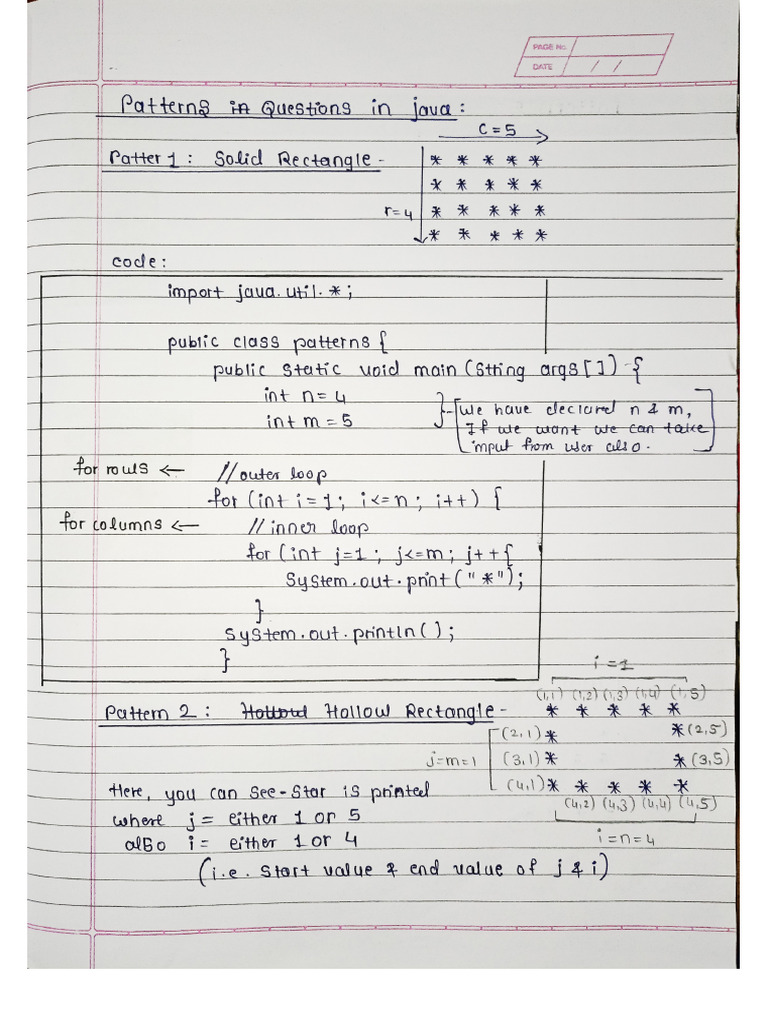 PAGE No.
DATE / /
Patterns in Questions in java :
c = 5
Patter 1 : Solid Rectangle -
* * * * *
* * * * *
r = 4 * * * * *
* * * * *
code :
import java.util.* ;
public class patterns {
public static void main (String args [ ]) {
int n = 4
int m = 5
We have declared n & m,
If we want we can take
input from user also.
for rows ← // outer loop
for (int i = 1 ; i <= n ; i++) {
for columns ← // inner loop
for (int j=1 ; j<=m ; j++{
System.out.print ("*");
}
System.out.println ( ) ;
}
i = 1
(1,1) (1,2) (1,3) (1,4) (1,5)
Pattern 2 : Hollow Rectangle - * * * * *
(2,1) * * (2,5)
j=m=1 (3,1) * * (3,5)
(4,1) * * * * *
(4,2) (4,3) (4,4) (4,5)
i = n = 4
Here, you can see - Star is printed
where j = either 1 or 5
also i = either 1 or 4
(i.e. Start value & end value of j & i)